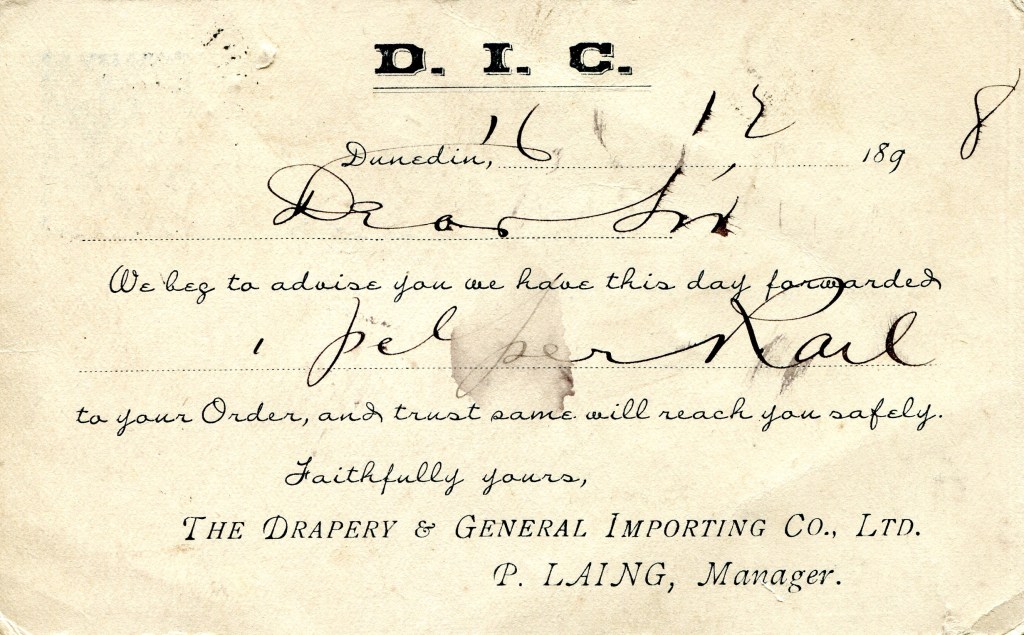 D. I. C.
Dunedin, 16 12 1898
Dear Sir
We beg to advise you we have this day forwarded
1 pcl per Rail
to your Order, and trust same will reach you safely.
Faithfully yours,
THE DRAPERY & GENERAL IMPORTING CO., LTD.
P. LAING, Manager.